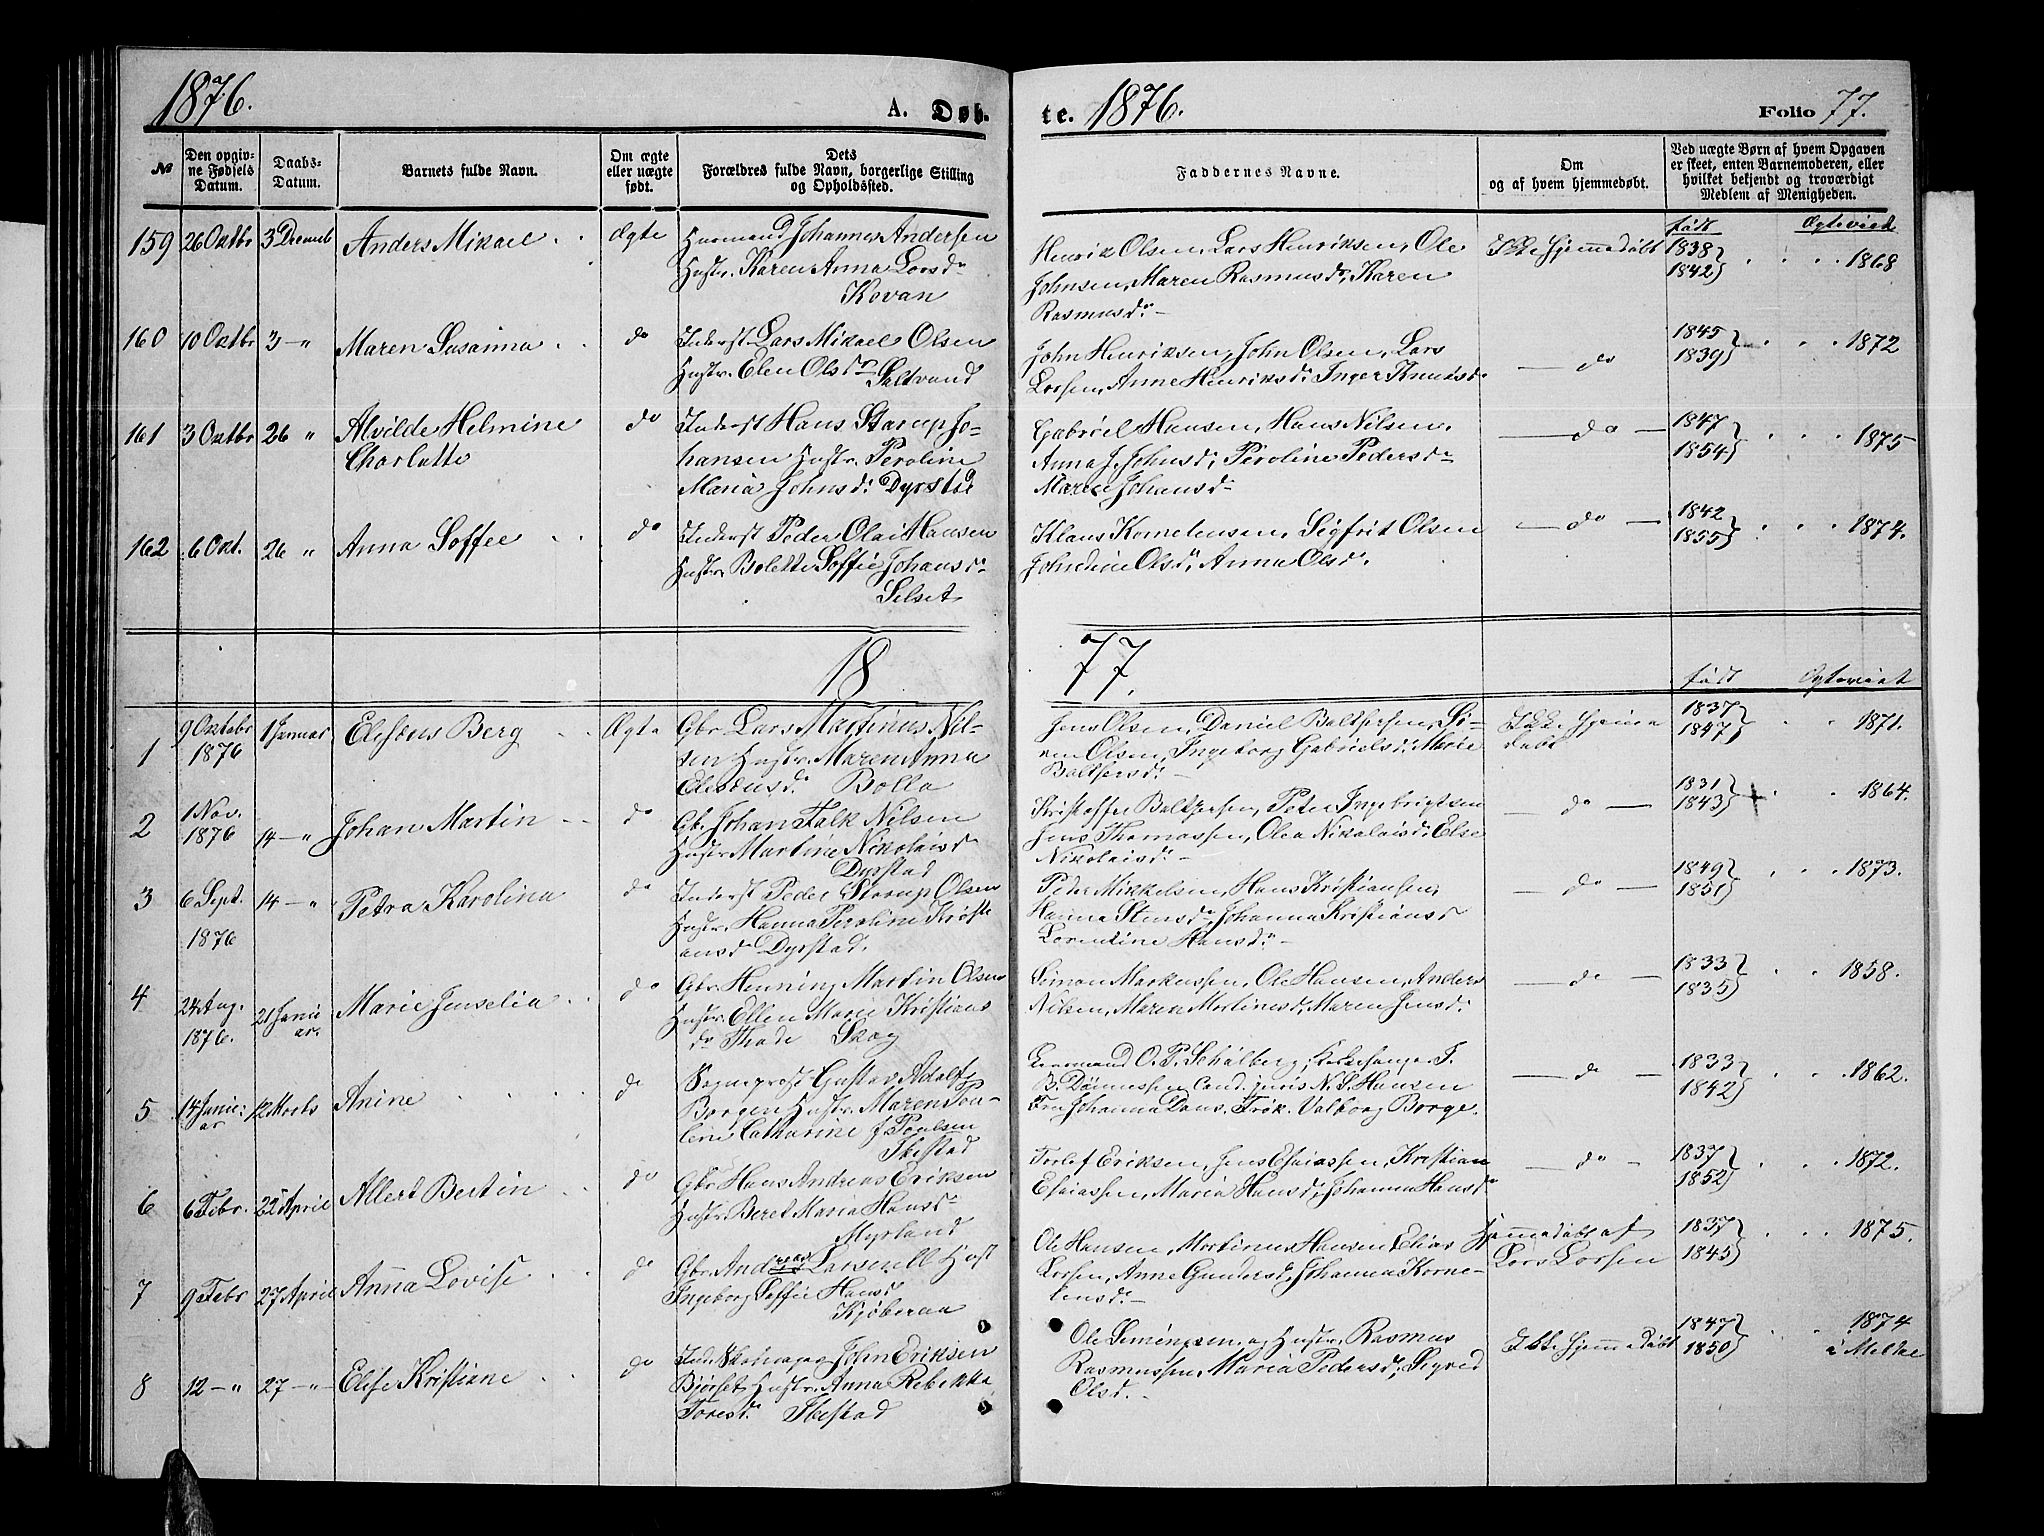 1876.
A. Døb-
te. 1876.
Folio 77.
№
Den opgiv-
ne Fødsels
Datum.
Daabs-
Datum.
Barnets fulde Navn.
Om ægte
eller uægte
født.
Dets
Forældres fulde Navn, borgerlige Stilling
og Opholdssted.
Faddernes Navne.
Om
og af hvem hjemmedøbt.
Ved uægte Børn af hvem Opgaven
er skeet, enten Barnemoderen, eller
hvilket bekjendt og troværdigt
Medlem af Menigheden.
født Ægteviet
159 26 Oktbr 3 Decemb Anders Mikael Ægte
Huusmand Johannes Andersen
Hustr. Karen Anna Larsdr
Kovan
Henrik Olsen, Lars Henriksen, Ole
Johnsen, Maren Rasmusdr, Karen
Rasmusdr
Ikke hjemmedøbt
1838
1842 1868
160 10 Oktbr 3 — " Maren Susanna do
Inderst Lars Mikael Olsen
Hustr. Elen Olsdr Saltvand
John Henriksen, John Olsen, Lars
Larsen, Anne Henriksdr Inger Knudsdr
— do
1845
1839 1872
161 3 Oktbr 26 " Alvilde Helmine
Charlotte do
Inderst Hans Starup Jo-
hansen Hustr. Peroline
Maria Johnsdr Dyrstad
Gabriel Hansen, Hans Nilsen,
Anna J. Johnsdr, Peroline Pedersdr
Maren Johansdr
— do —
1847
1854 1875
162 6 Okt. 26 " Anna Soffie do
Inderst Peder Olai Hansen
Hustr. Bolette Soffie Johansdr
Selset
Klaus Kornelensen, Sigfrit Olsen
Johndine Olsdr, Anna Olsdr.
— do —
1842
1855 1874.
18 77.
født Ægteviet
1 9 Oktobr
1876 1 Januar Elisæus Berg Ægte
Gbr. Lars Martinus Nil-
sen Hustr. Maren Anna
Elisæusdr. Bolla
Jens Olsen, Daniel Baltsersen, Si-
on Olsen, Ingeborg Gabrielsdr, Marie
Baltsersdr
Ikke hjemme
døbt
1837
1847 1871.
2 1 Nov.
1876 14 — " Johan Martin do
Gbr. Johan Falk Nilsen
Hustr Martine Nikolaisdr
Dyrstad
Kristoffer Baltsersen, Peter Ingebrigtsen
Jens Thomassen, Olea Nikolaisdr, Else
Nikolaisdr
— do —
1831
1843 1864.
3 6 Sept.
1876 14 — " Petra Karolina do
Inderst Peder Starup Olsen
Hustr. Hanna Peroline Kristi
ansdr Dyrstad.
Peder Mikkelsen, Hans Kristiansen,
Hanna Stensdr, Johanna Kristiansd
Lorentine Hansdr
— do —
1849
1851 1873.
4 24 Aug.
1876. 21 Janu
ar. Marie Jenselia do
Gbr. Henning Martin Olsen
Hustr. Ellen Marie Kristians
dr Thode Skog
Simon Markussen, Ole Hansen, Anders
Nilsen, Maren Martinesdr, Maren Jensdr.
— do —
1833
1835 1858.
5 14 Janu
ar 12 Marts Anine do
Sogneprest Gustav Adolf
Borgen Hustr. Maren Pou-
line Catharine f. Poulsen
Ibestad
Leensmand O. P. Schølberg, Kirkesanger T.
B. Dønnessen Cand. juris N. S. Hansen
Fru Johanna Dons, Frøk. Valborg Borge.
— do —
1833
1842 1862.
6 6 Febr. 22 April Albert Bertin do
Gbr. Hans Andreas Eriksen
Hustr. Beret Maria Hansdr
Myrland
Torlef Eriksen, Jens Esaiassen, Kristian
Esaiassen, Maria Hansdr, Johanna Hansdr
— do —
1837
1852 1872.
7 9 Febr 27 April Anna Lovise do
Gbr. Andreas Larsen Hust
Ingeborg Soffie Hansd
Kjøberaa
Ole Hansen, Martinus Hansen Elias
Larsen, Anne Gundersdr, Johanna Korne-
liusdr
hjemmedøbt af
Lars Larsen
1837
1845 1875.
8 12 — " 27 — " Elise Kristiane do
Ind. Skomager John Eriksen
Bjørset Hustr. Anna Rebekka
Toresdr. Ibestad
Ole Simonsen, og Hustr. Rasmus
Rasmussen, Maria Pedersdr, Sigrid
Olsd.
Ikke hjemmedøbt
1847
1850 1874
i Melhe